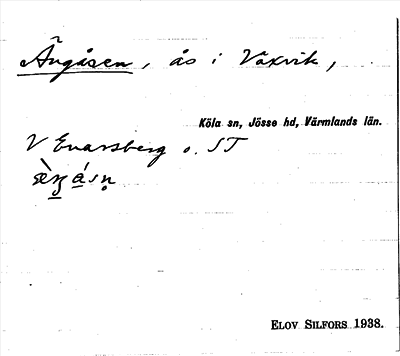 Ängåsen, ås i Växvik,
Köla sn, Jösse hd, Värmlands län.
V Enarsberg o. ST
ELOV SILFORS 1938.